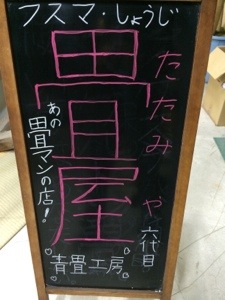 フスマ しょうじ
畳屋
たたみや
六代目
あの畳マンの店!
青畳工房